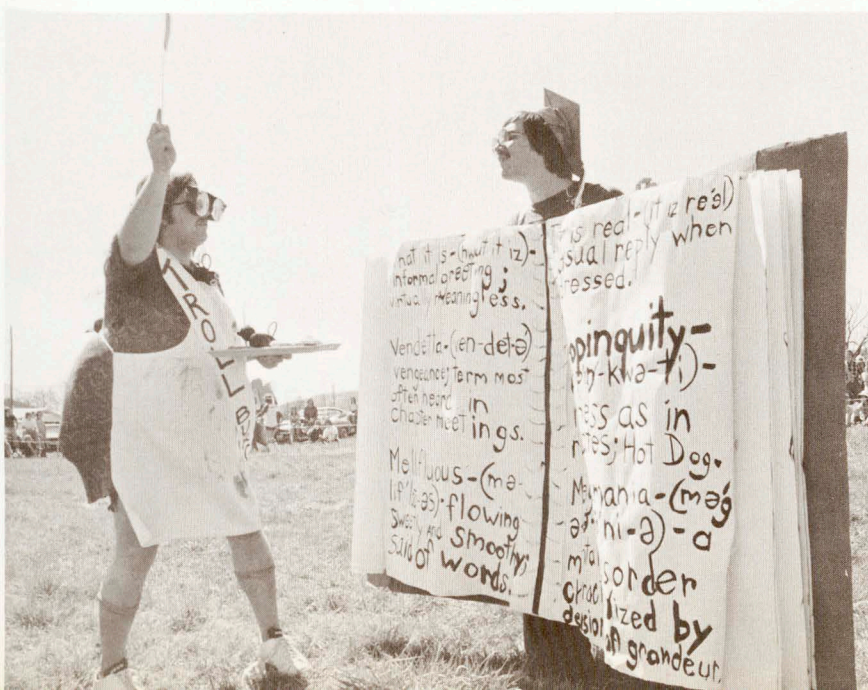 TROLL B
hat it is-(hwut it iz)-
informal greeting;
virtually meaningless.
Vendetta-(ven-det-ə)
vengeance; term most
often heard in
chapter meetings.
Mellfluous-(mə-
lif'lu-əs)-flowing
sweetly and smoothly;
said of words.
is real-(it iz re'əl)
usual reply when
ressed.
opinquity-
pin-kwə-ti)-
ness as in
Hot Dog.
mania-(meg
ni-ə)-a
sorder
ized by
grandeur.